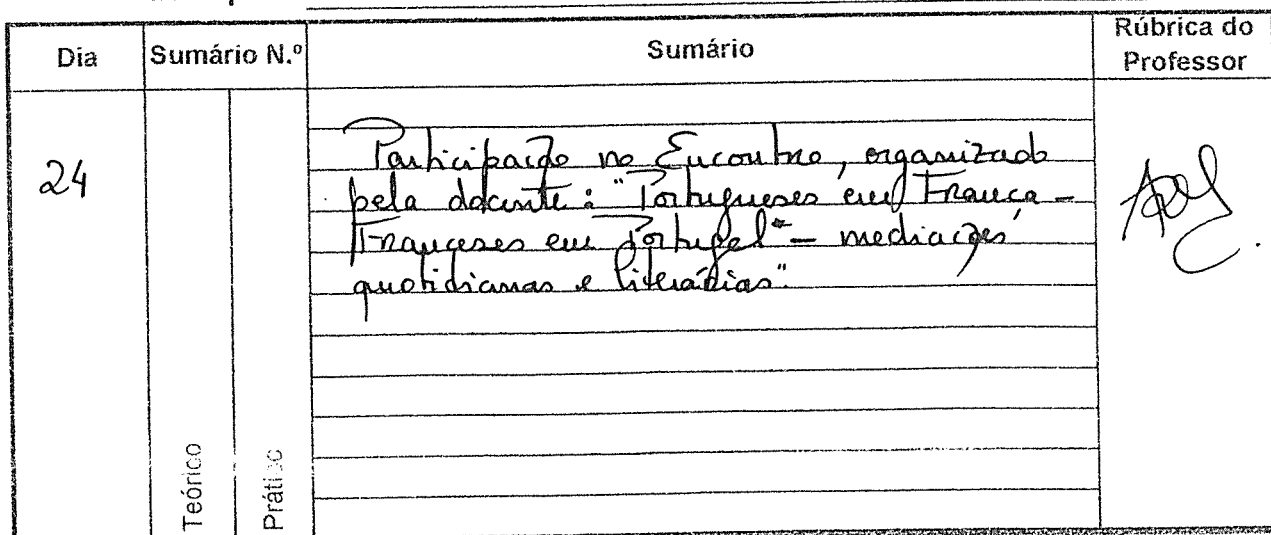 Dia Sumário N.º Sumário Rúbrica do Professor
24
Participação no Encontro, organizado
pela docente: "Portugueses em França -
Franceses em Portugal" - mediações
quotidianas e literárias".
Teórico
Prático